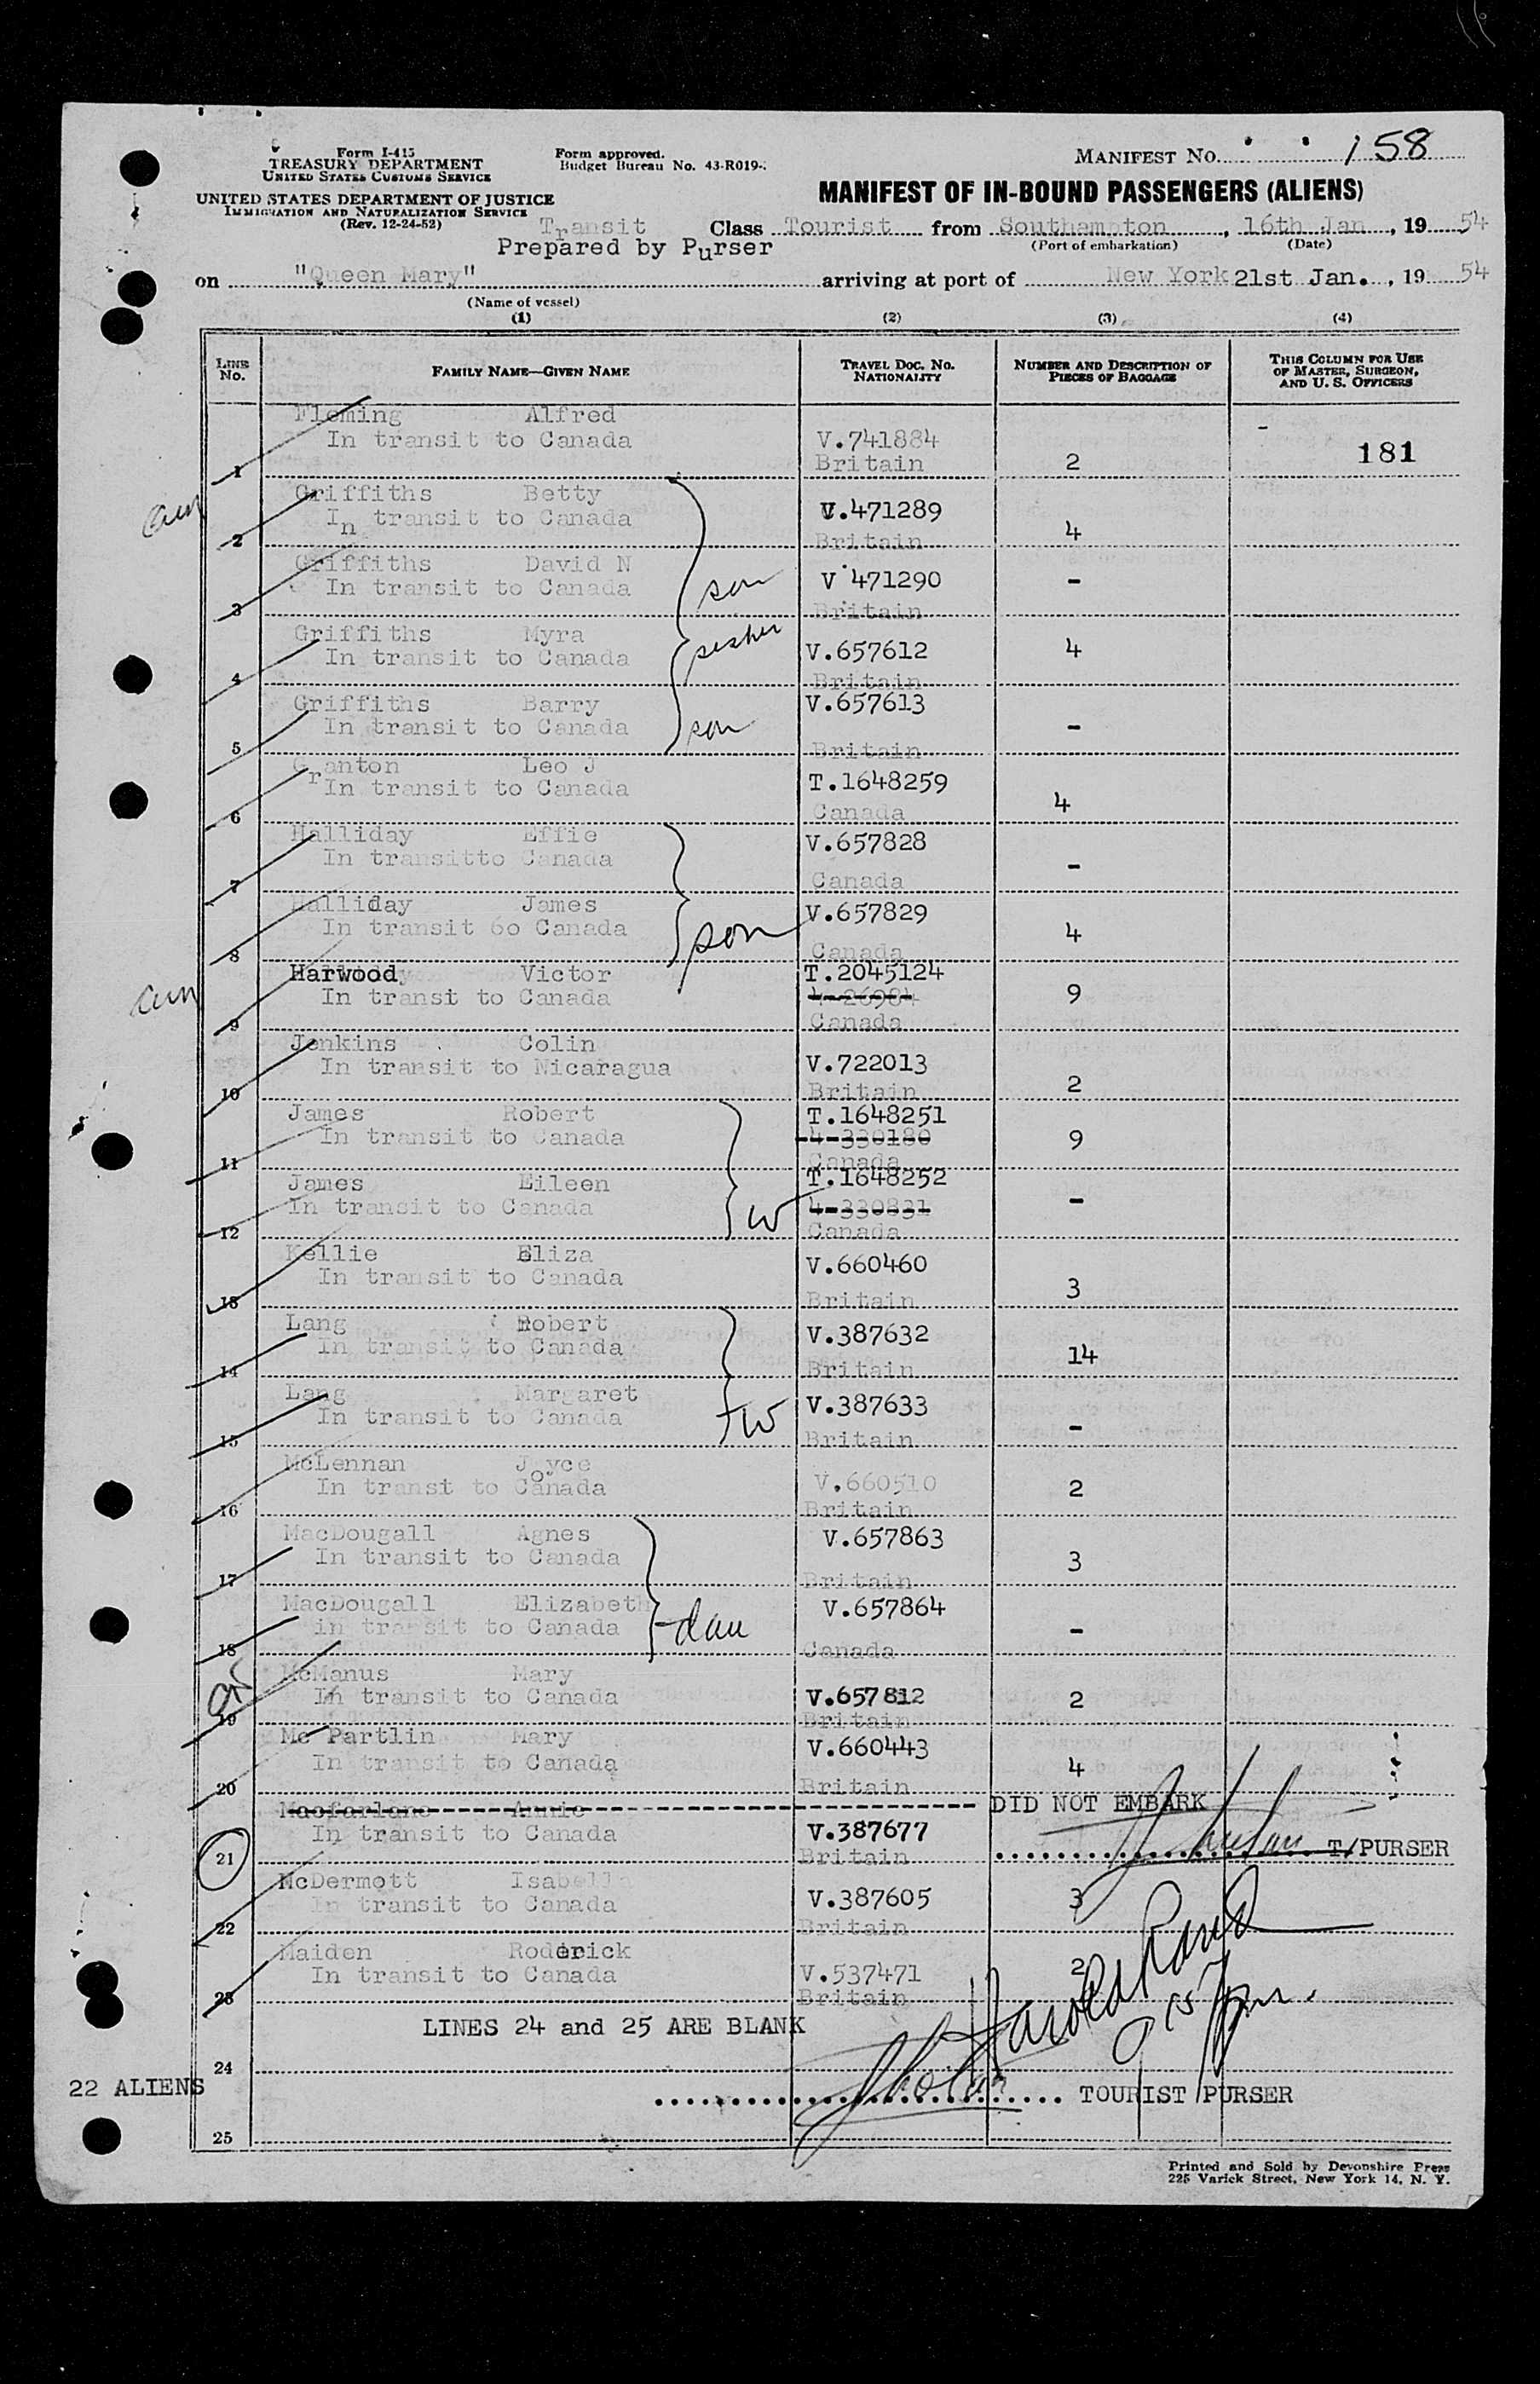 Form I-415
TREASURY DEPARTMENT
UNITED STATES CUSTOMS SERVICE
UNITED STATES DEPARTMENT OF JUSTICE
IMMIGRATION AND NATURALIZATION SERVICE
(Rev. 12-24-52)
Form approved.
Budget Bureau No. 43-R019-
MANIFEST NO. 158
MANIFEST OF IN-BOUND PASSENGERS (ALIENS)
Transit Class Tourist from Southampton, 16th Jan, 1954
Prepared by Purser (Port of embarkation) (Date)
on "Queen Mary" arriving at port of New York 21st Jan., 1954
(Name of vessel)
(1) (2) (3) (4)
LINE No. FAMILY NAME—GIVEN NAME TRAVEL DOC. NO. NATIONALITY NUMBER AND DESCRIPTION OF PIECES OF BAGGAGE THIS COLUMN FOR USE OF MASTER, SURGEON, AND U. S. OFFICERS
Fleming Alfred
In transit to Canada V.741884 181
1 Britain 2
Griffiths Betty
In transit to Canada V.471289
2 Britain 4
Griffiths David N
In transit to Canada son V 471290 -
3 Britain
Griffiths Myra
In transit to Canada sister V.657612 4
4 Britain
Griffiths Barry V.657613
In transit to Canada son -
5 Britain
Granton Leo J
In transit to Canada T.1648259
6 Canada 4
Halliday Effie V.657828
In transitto Canada -
7 Canada
Halliday James V.657829
In transit 6o Canada son 4
8 Canada
Harwood Victor T.2045124
In transt to Canada 4-26984 9
9 Canada
Jenkins Colin
In transit to Nicaragua V.722013
10 Britain 2
James Robert T.1648251
In transit to Canada 4-330180 9
11 Canada
James Eileen T.1648252
In transit to Canada W 4-330831 -
12 Canada
Kellie Eliza V.660460
In transit to Canada 3
13 Britain
Lang Robert V.387632
In transit to Canada 14
14 Britain
Lang Margaret V.387633
In transit to Canada W -
15 Britain
McLennan Joyce
In transt to Canada V.660510 2
16 Britain
MacDougall Agnes V.657863
In transit to Canada 3
17 Britain
MacDougall Elizabeth V.657864
in transit to Canada dau -
18 Canada
McManus Mary
In transit to Canada V.657812 2
19 Britain
Mc Partlin Mary V.660443
In transit to Canada 4
20 Britain
Macfarlane Annie DID NOT EMBARK
In transit to Canada V.387677
21 Britain T/PURSER
McDermott Isabella
In transit to Canada V.387605 3
22 Britain
Maiden Roderick
In transit to Canada V.537471 2
23 Britain
LINES 24 and 25 ARE BLANK
24
22 ALIENS
TOURIST PURSER
25
Printed and Sold by Devonshire Press
225 Varick Street, New York 14, N. Y.